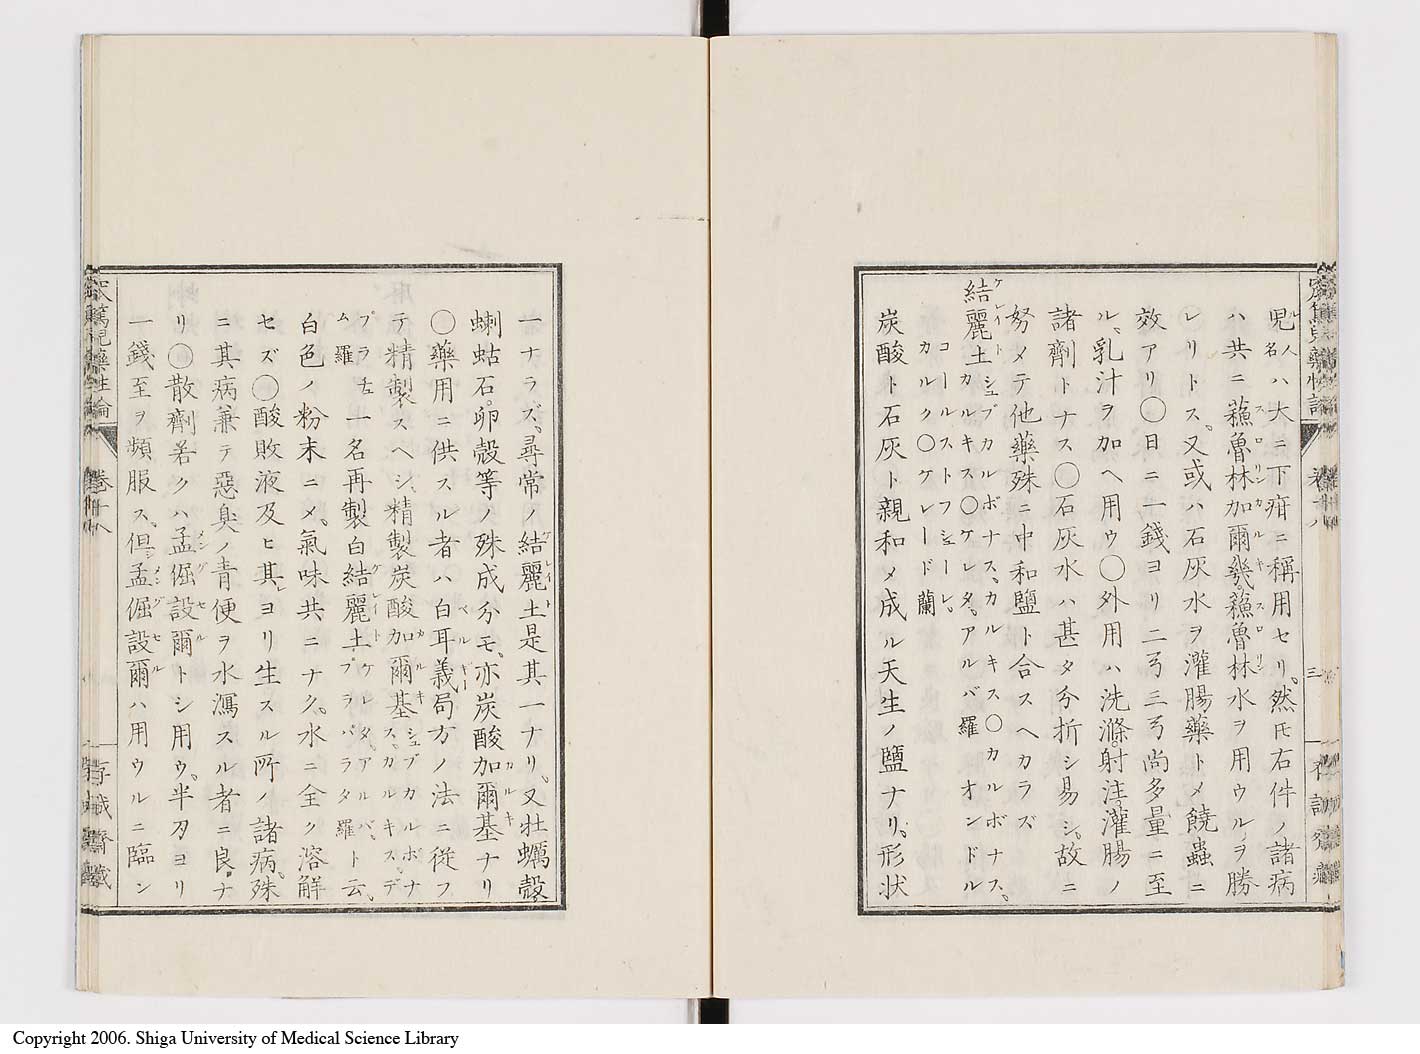 児人名ハ大ニ下疳ニ稱用セリ。然𪜈右件ノ諸病
ハ共ニ蘓魯林加爾幾蘓魯林水ヲ用ウルヲ勝
レリトス。又或ハ石灰水ヲ灌腸藥トメ饒蟲ニ
效アリ〇日ニ一錢ヨリ二弓三弓尚多量ニ至
ル、乳汁ヲ加ヘ用ウ〇外用ハ洗滌。射注。灌腸ノ
諸劑トナス〇石灰水ハ甚タ分折シ易シ。故ニ
努メテ他藥殊ニ中和鹽ト合スヘカラズ
結麗土シュブカルボナス、カルキス〇カルボナス。カルキス〇ケレタ。アル〇バ羅 オンドルコールストフシューレ。カルク〇ケレード蘭
炭酸ト石灰ト親和メ成ル天生ノ鹽ナリ。形状
一ナラズ。尋常ノ結麗土是其一ナリ。又牡蠣殼。
蝲蛄石。卵殼等ノ殊成分モ。亦炭酸加爾基ナリ
〇藥用ニ供スル者ハ白耳義局方ノ法ニ従フ
テ精製スヘシ。精製炭酸加爾基シュブカルボナス。カルキス。デプラチュム羅
一名再製白結麗土ケレタ。アルバ。プラパラタ羅ト云。
白色ノ粉末ニメ。氣味共ニナク。水ニ全ク溶解
セズ〇酸敗液及ヒ其レヨリ生スル所ノ諸病。殊
ニ其病兼テ惡臭ノ青便ヲ水瀉スル者ニ良ナ
リ〇散劑若クハ孟倔設爾トシ用ウ。半刄ヨリ
一錢至ヲ頻服ス。但シ孟倔設爾ハ用ウルニ臨ン
篤児藥性論
卷十八
三
存誠齋藏
Copyright 2006. Shiga University of Medical Science Library